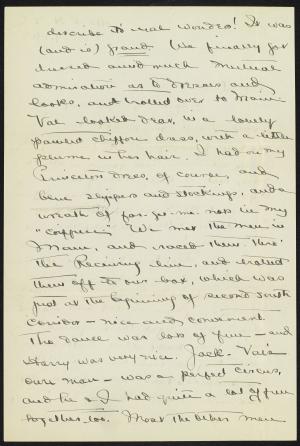 describe to real wonders! It was
(and is) grand. We finally got
dressed amid much mutual
admiration as to dresses and
looks, and trotted over to Main.
Val looked dear, in a lovely
painted chiffon dress, with a little
plume in her hair. I had on my
Princeton dress, of course, and
blue slippers and stockings, and a
wreath of for-get-me-nots in my
"coffure". We met the men in
Main, and raced them thro'
the Receiving line, and trotted
them off to our box, which was
just at the beginning of second south
corridor — nice and convenient.
The dance was lots of fun — and
Harry was very nice. Jack - Val's
own man — was a perfect circus,
and he & I had quite a lot of fun
together, too. Most the other men